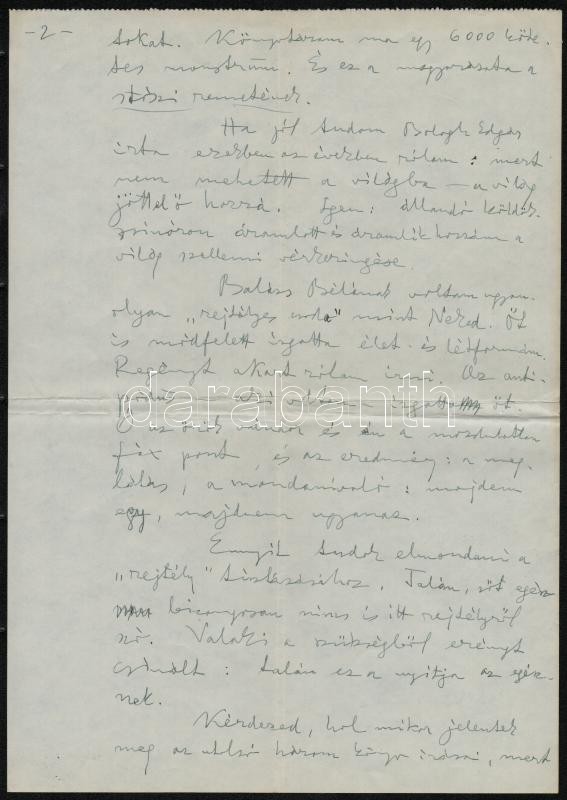 -2-
tokat. Könyvtáram ma egy 6000 köte-
tes monstrum. És ez a magyarázata a
stószi remetének.
Ha jól tudom Balogh Edgár
írta ezekben az években rólam: mert
nem mehetett a világba – a világ
jött el ő hozzá. Igen: állandó köldök-
zsinóron áramlott és áramlik hozzám a
világ szellemi vérkeringése.
Balázs Bélának voltam ugyan-
olyan „rejtélyes csoda" mint Neked. Őt
is módfelett izgatta élet- és létformám.
Regényt akart rólam írni. Az anti-
izgatta őt.
Ő az örök vándor és én a mozdulatlan
fix pont, és az eredmény: a meg-
látás, a mondanivaló: majdnem
egy, majdnem ugyanaz.
Ennyit tudok elmondani a
„rejtély" tisztázásához. Talán, sőt egész
bizonyosan nincs is itt rejtélyről
szó. Valaki a szükségből erényt
csinált: talán ez a nyitja az egész-
nek.
Kérdezed, hol mikor jelentek
meg az utolsó három könyv írásai, mert
darabanth